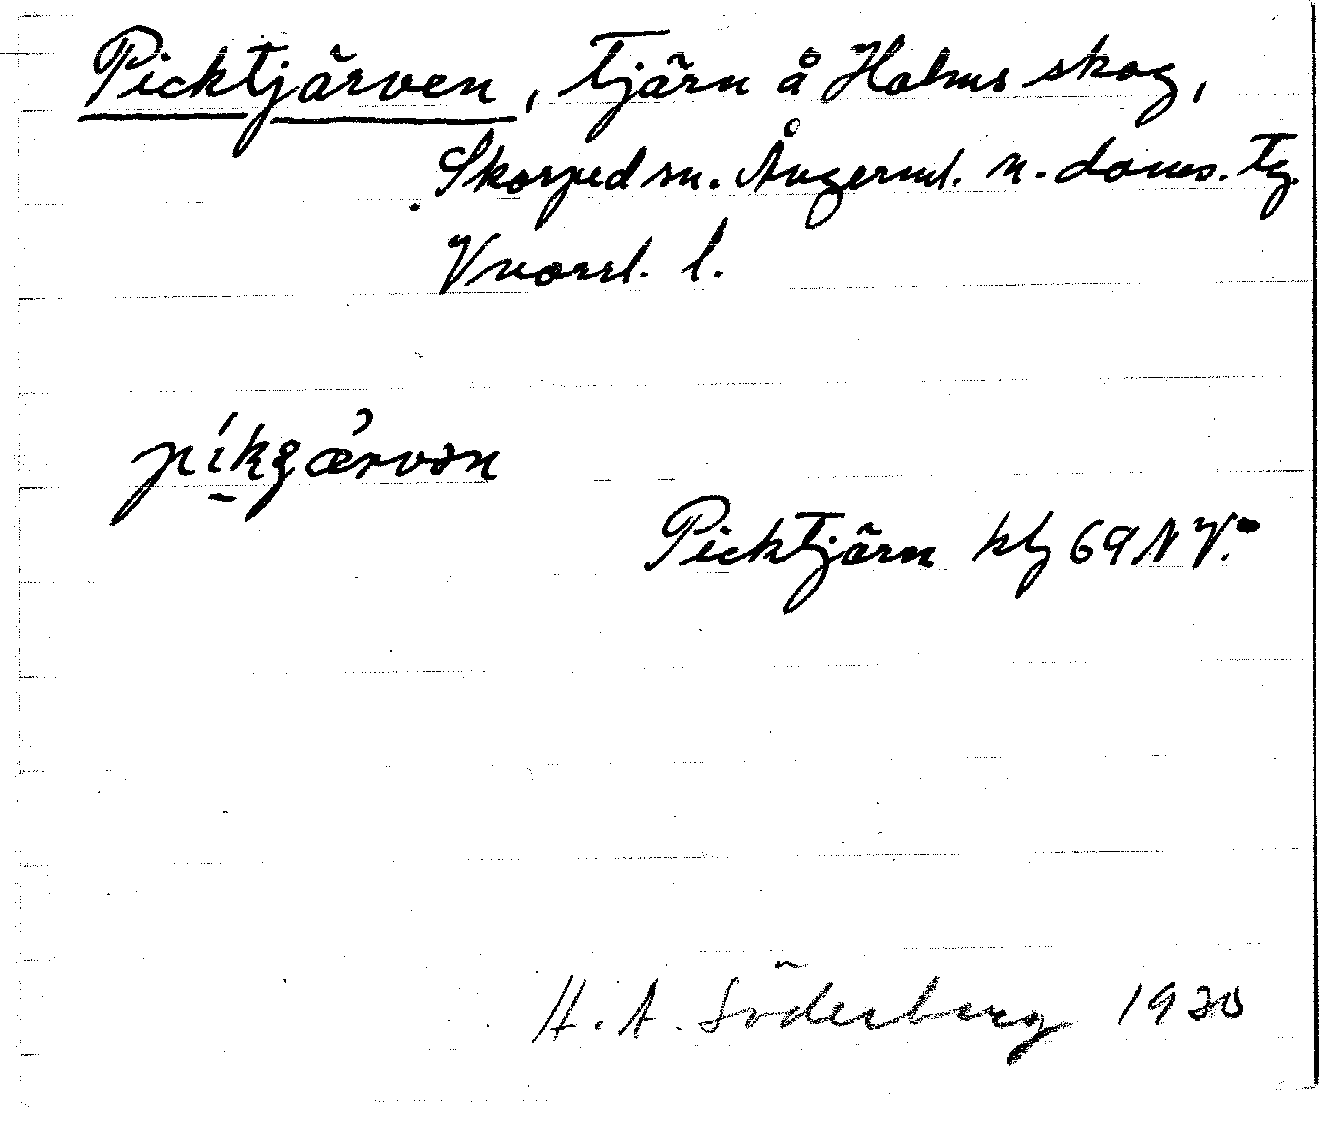 Picktjärven, tjärn å Holms skog,
Skorped sn. Ångerml. n. doms. tg.
Vnorrl. l.
píkʒæ̀rvən
Picktjärn kbl 69 NV.
H. A. Söderberg 1930